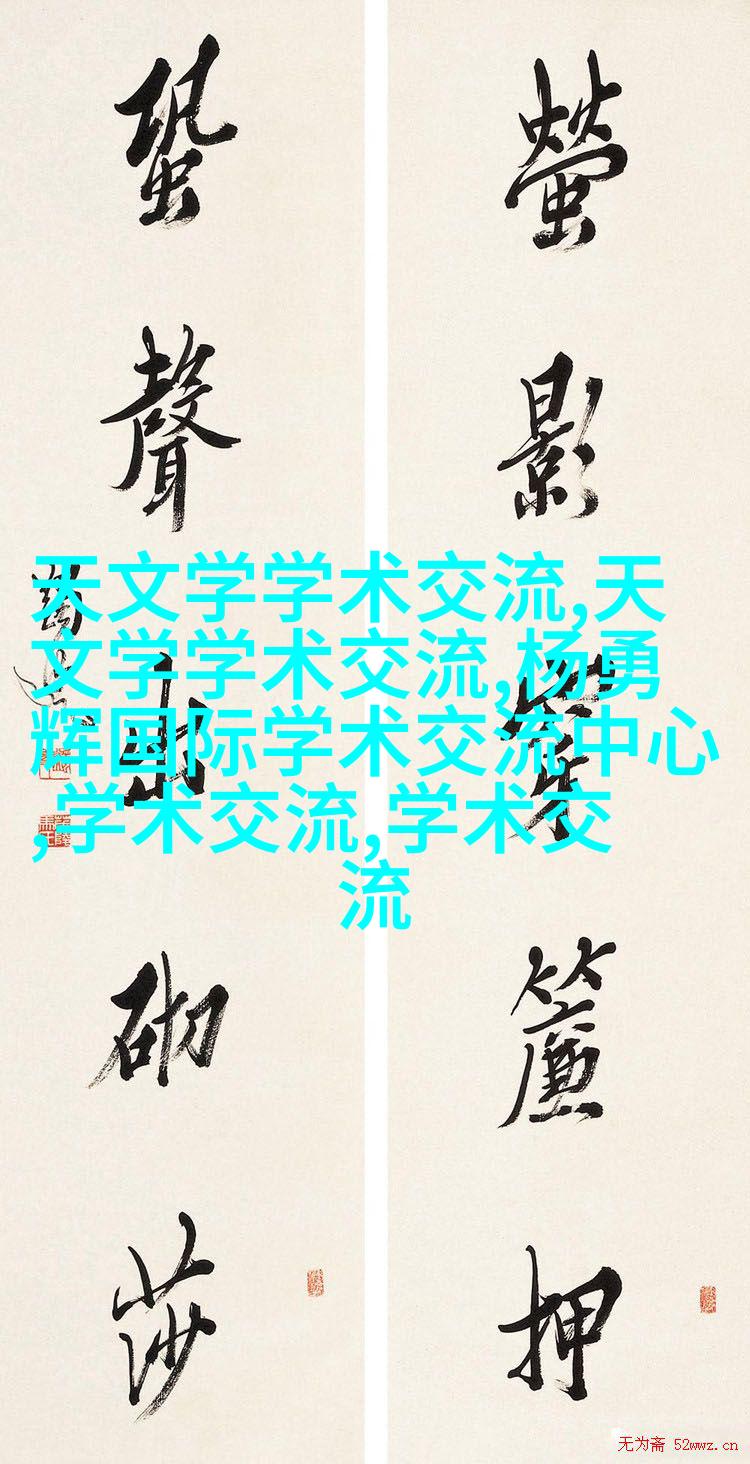 螢影牽簾押
蛩聲出砌莎
天文学学术交流,天
文学学术交流,杨勇
辉国际学术交流中心
,学术交流,学术交
流
无为斋 52wwz.cn